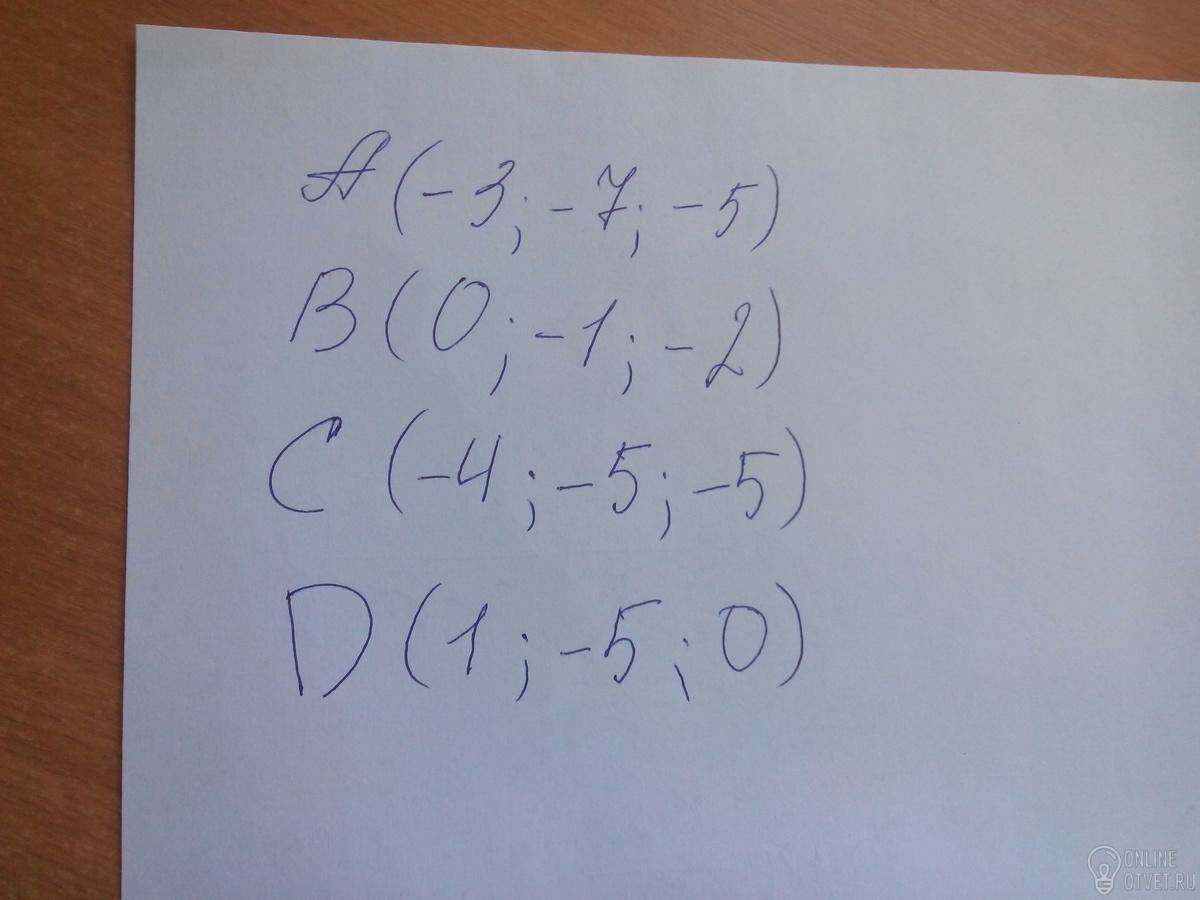 A (-3; -7; -5)
B (0; -1; -2)
C (-4; -5; -5)
D (1; -5; 0)
ONLINE
OTVET.RU